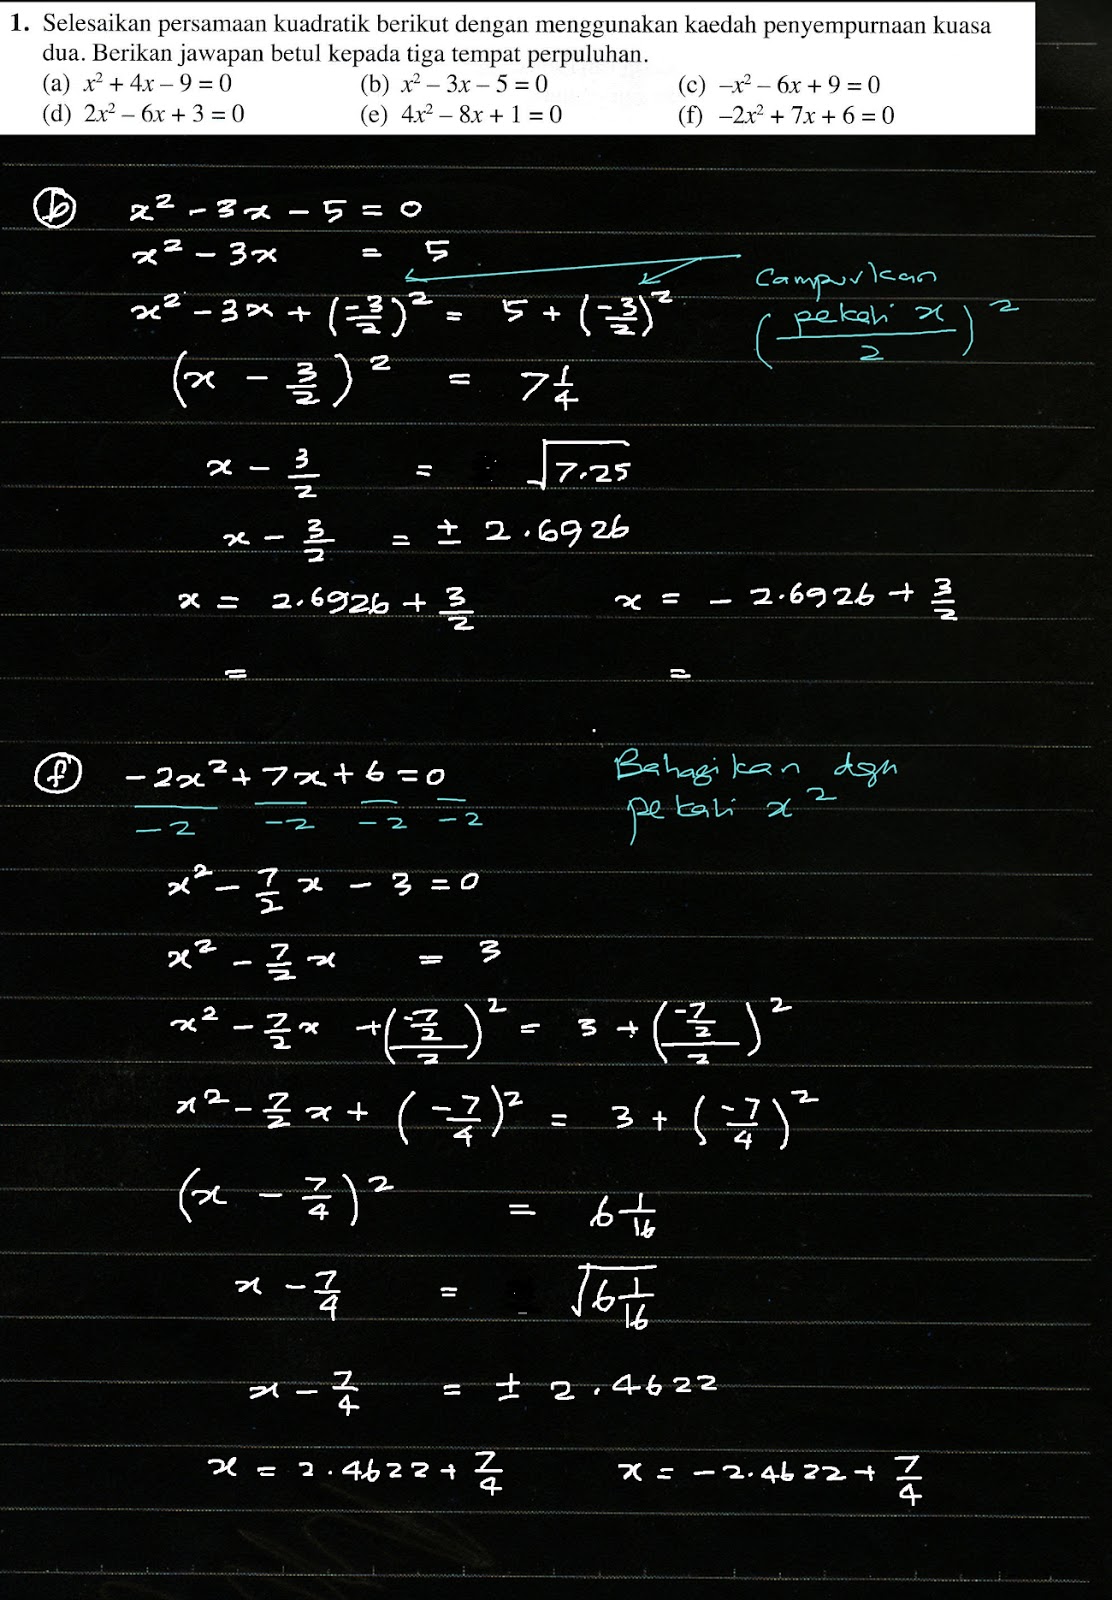 1. Selesaikan persamaan kuadratik berikut dengan menggunakan kaedah penyempurnaan kuasa
dua. Berikan jawapan betul kepada tiga tempat perpuluhan.
(a) x² + 4x – 9 = 0 (b) x² – 3x – 5 = 0 (c) –x² – 6x + 9 = 0
(d) 2x² – 6x + 3 = 0 (e) 4x² – 8x + 1 = 0 (f) –2x² + 7x + 6 = 0
(b) x² - 3x - 5 = 0
x² - 3x = 5
Campurkan
x² - 3x + (-3/2)² = 5 + (-3/2)² (pekali x/2)²
(x - 3/2)² = 7 1/4
x - 3/2 = √7.25
x - 3/2 = ± 2.6926
x = 2.6926 + 3/2 x = - 2.6926 + 3/2
= =
(f) -2x²/-2 + 7x/-2 + 6/-2 = 0/-2 Bahagikan dgn
pekali x²
x² - 7/2 x - 3 = 0
x² - 7/2 x = 3
x² - 7/2 x + ((-7/2)/2)² = 3 + ((-7/2)/2)²
x² - 7/2 x + (-7/4)² = 3 + (-7/4)²
(x - 7/4)² = 6 1/16
x - 7/4 = √6 1/16
x - 7/4 = ± 2.4622
x = 2.4622 + 7/4 x = -2.4622 + 7/4